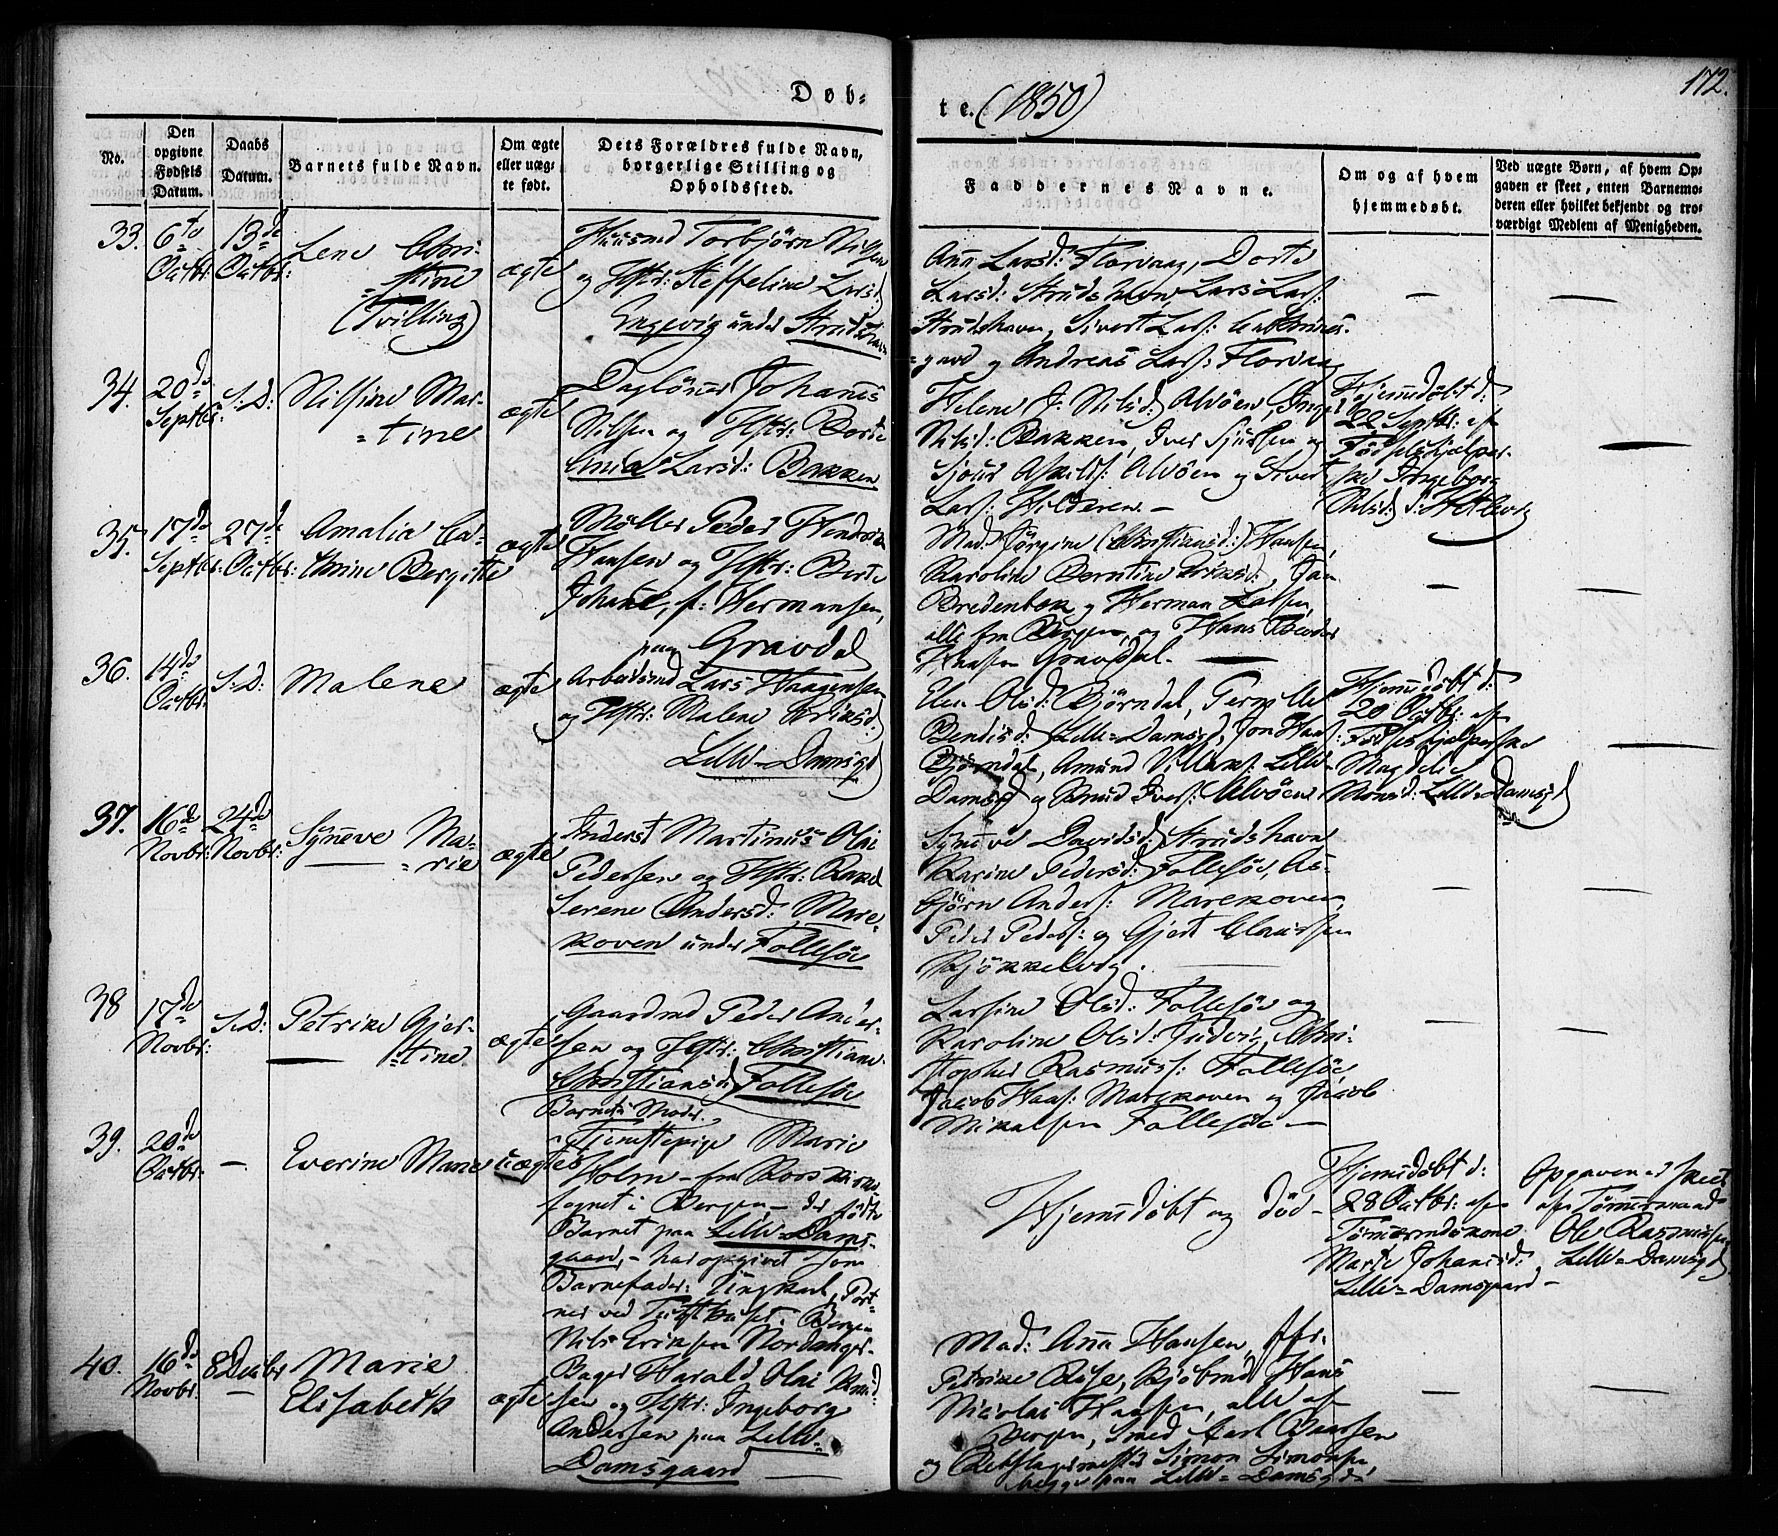 Døb-
te. (1850)
172.
No.
Den
opgivne
Fødsels
Datum.
Daabs
Datum.
Barnets fulde Navn.
Om ægte
eller uæg-
te født.
Dets Forældres fulde Navn,
borgerlige Stilling og
Opholdssted.
Faddernes Navne.
Om og af hvem
hjemmedøbt.
Ved uægte Børn, af hvem Op-
gaven er skeet, enten Barnemo-
deren eller hvilket bekjendt og tro-
værdigt Medlem af Menigheden.
33.
6te
Octbr:
13de
Octbr:
Lene Chri-
=stine
(Tvilling)
ægte
Huusmd Torbjörn Nilsen
og Hstr: Steffeline Larsd:
Engevig under Strudshavn
Ana Larsd: Florvaag, Dorte
Larsd: Strudshavn, Lars Lars:
Strudshavn, Sivert Lars:
=gaard og Andreas Lars: Florvaag
—
—
34.
20de
Septbr:
S.D:
Nilsine Mar-
=tine
ægte
Daglönner Johanes
Nilsen og Hstr: Berte
Ania Larsd: Bakken
Helene J: Nilsd: Alvöen,
Nilsd: Bakken, Iver Sjursen og
Sjour Askilds: Alvöen og Sivert
Lars: Hilderen. —
Hjemdöbt d:
22 Septbr: af
Födselshjelper-
ske Ingeborg
Nilsd:
—
35.
17de
Septbr:
27de
Octbr:
Amalia Ca-
thrine Bergitte
ægte
Möller Peder Hendrik
Hansen og Hstr: Berte
Johane, f: Hermansen,
paa Gravdal
Mad: Jörgine (Christiansd:) Hansen,
Karoline Berntine Eriksd:, Jan
Bredenbek og Herman Larsen,
alle fra Bergen, og Hans Theodor
Hansen Gravdal. —
—
—
36.
14de
Octbr:
S.D:
Malene
ægte
Arbeidsmd Lars Haagensen
og Hstr: Malene Eriksd:
Lille-Damsgd
Elen Olsd: Björndal,
Bendisd: Lille-Damsgd, Jon Haas:
Björndal, Amund Villums: Lille-
Damsgd og Knud Ivers: Alvöen
Hjemdöbt d:
20 Octbr: af
Födselshjelperske
Magdele
Monsd: Lille-Damsgd
—
37.
16de
Novbr:
24de
Novbr:
Syneve Ma-
=rie
ægte
Anderst Martinus Olai
Pedersen og Hstr: Rakel
Serene Andersd: Mare-
koven under Follesöe
Syneve Davidsd: Strudshavn
Karine Pedersd: Follesöe, As-
björn Anders: Marekoven,
Peder Peders: og Gjert Clausen
Kjökkelvig.
—
—
38
17de
Novbr:
S.D:
Petrine Gjer-
=tine
ægte
Gaardmd Peder Ander-
sen og Hstr: Christiane
Christiansd: Follesöe
Larsine Olsd: Follesöe og
Karoline Olsd: Judvig, Chri-
stopher Rasmuss: Follesöe,
Jacob Haas: Marekoven og Jacob
Mikalsen Follesöe —
—
—
39.
20de
Octbr:
—
Everine Marie
uægte
Barnets Moder:
Tjenestepige Marie
Holm — fra Kors Kirke
sognet i Bergen, der födte
Barnet paa Lille-Dams-
gaard, — har opgivet som
Barnefader: Ungkarl, Port-
ner ved Tugthuset i Bergen
Nils Eriksen Nordanger
Hjemdöbt og död —
Hjemdöbt d:
28 Octbr: af
Tömermdskone
Marte Johansd:
Lille-Damsgaard —
Opgaven er skeet
af Tömermand
Ole Rasmussen
Lille-Damsgd
40.
16de
Novbr:
8 Decbr
—
Marie
Elisabeth
ægte
Bager Harald Olai Knud-
sen og Hstr: Ingeborg
Andersen paa Lille-
Damsgaard —
Mad: Ana Hansen, Jfr:
Petrine Riise, Kjöbmd Hans
Nicolai Hansen, alle af
Bergen, Smed Carl Baarsen
og Rebslagermester Simon Simonsen
begge paa Lille-Damsgd
—
—